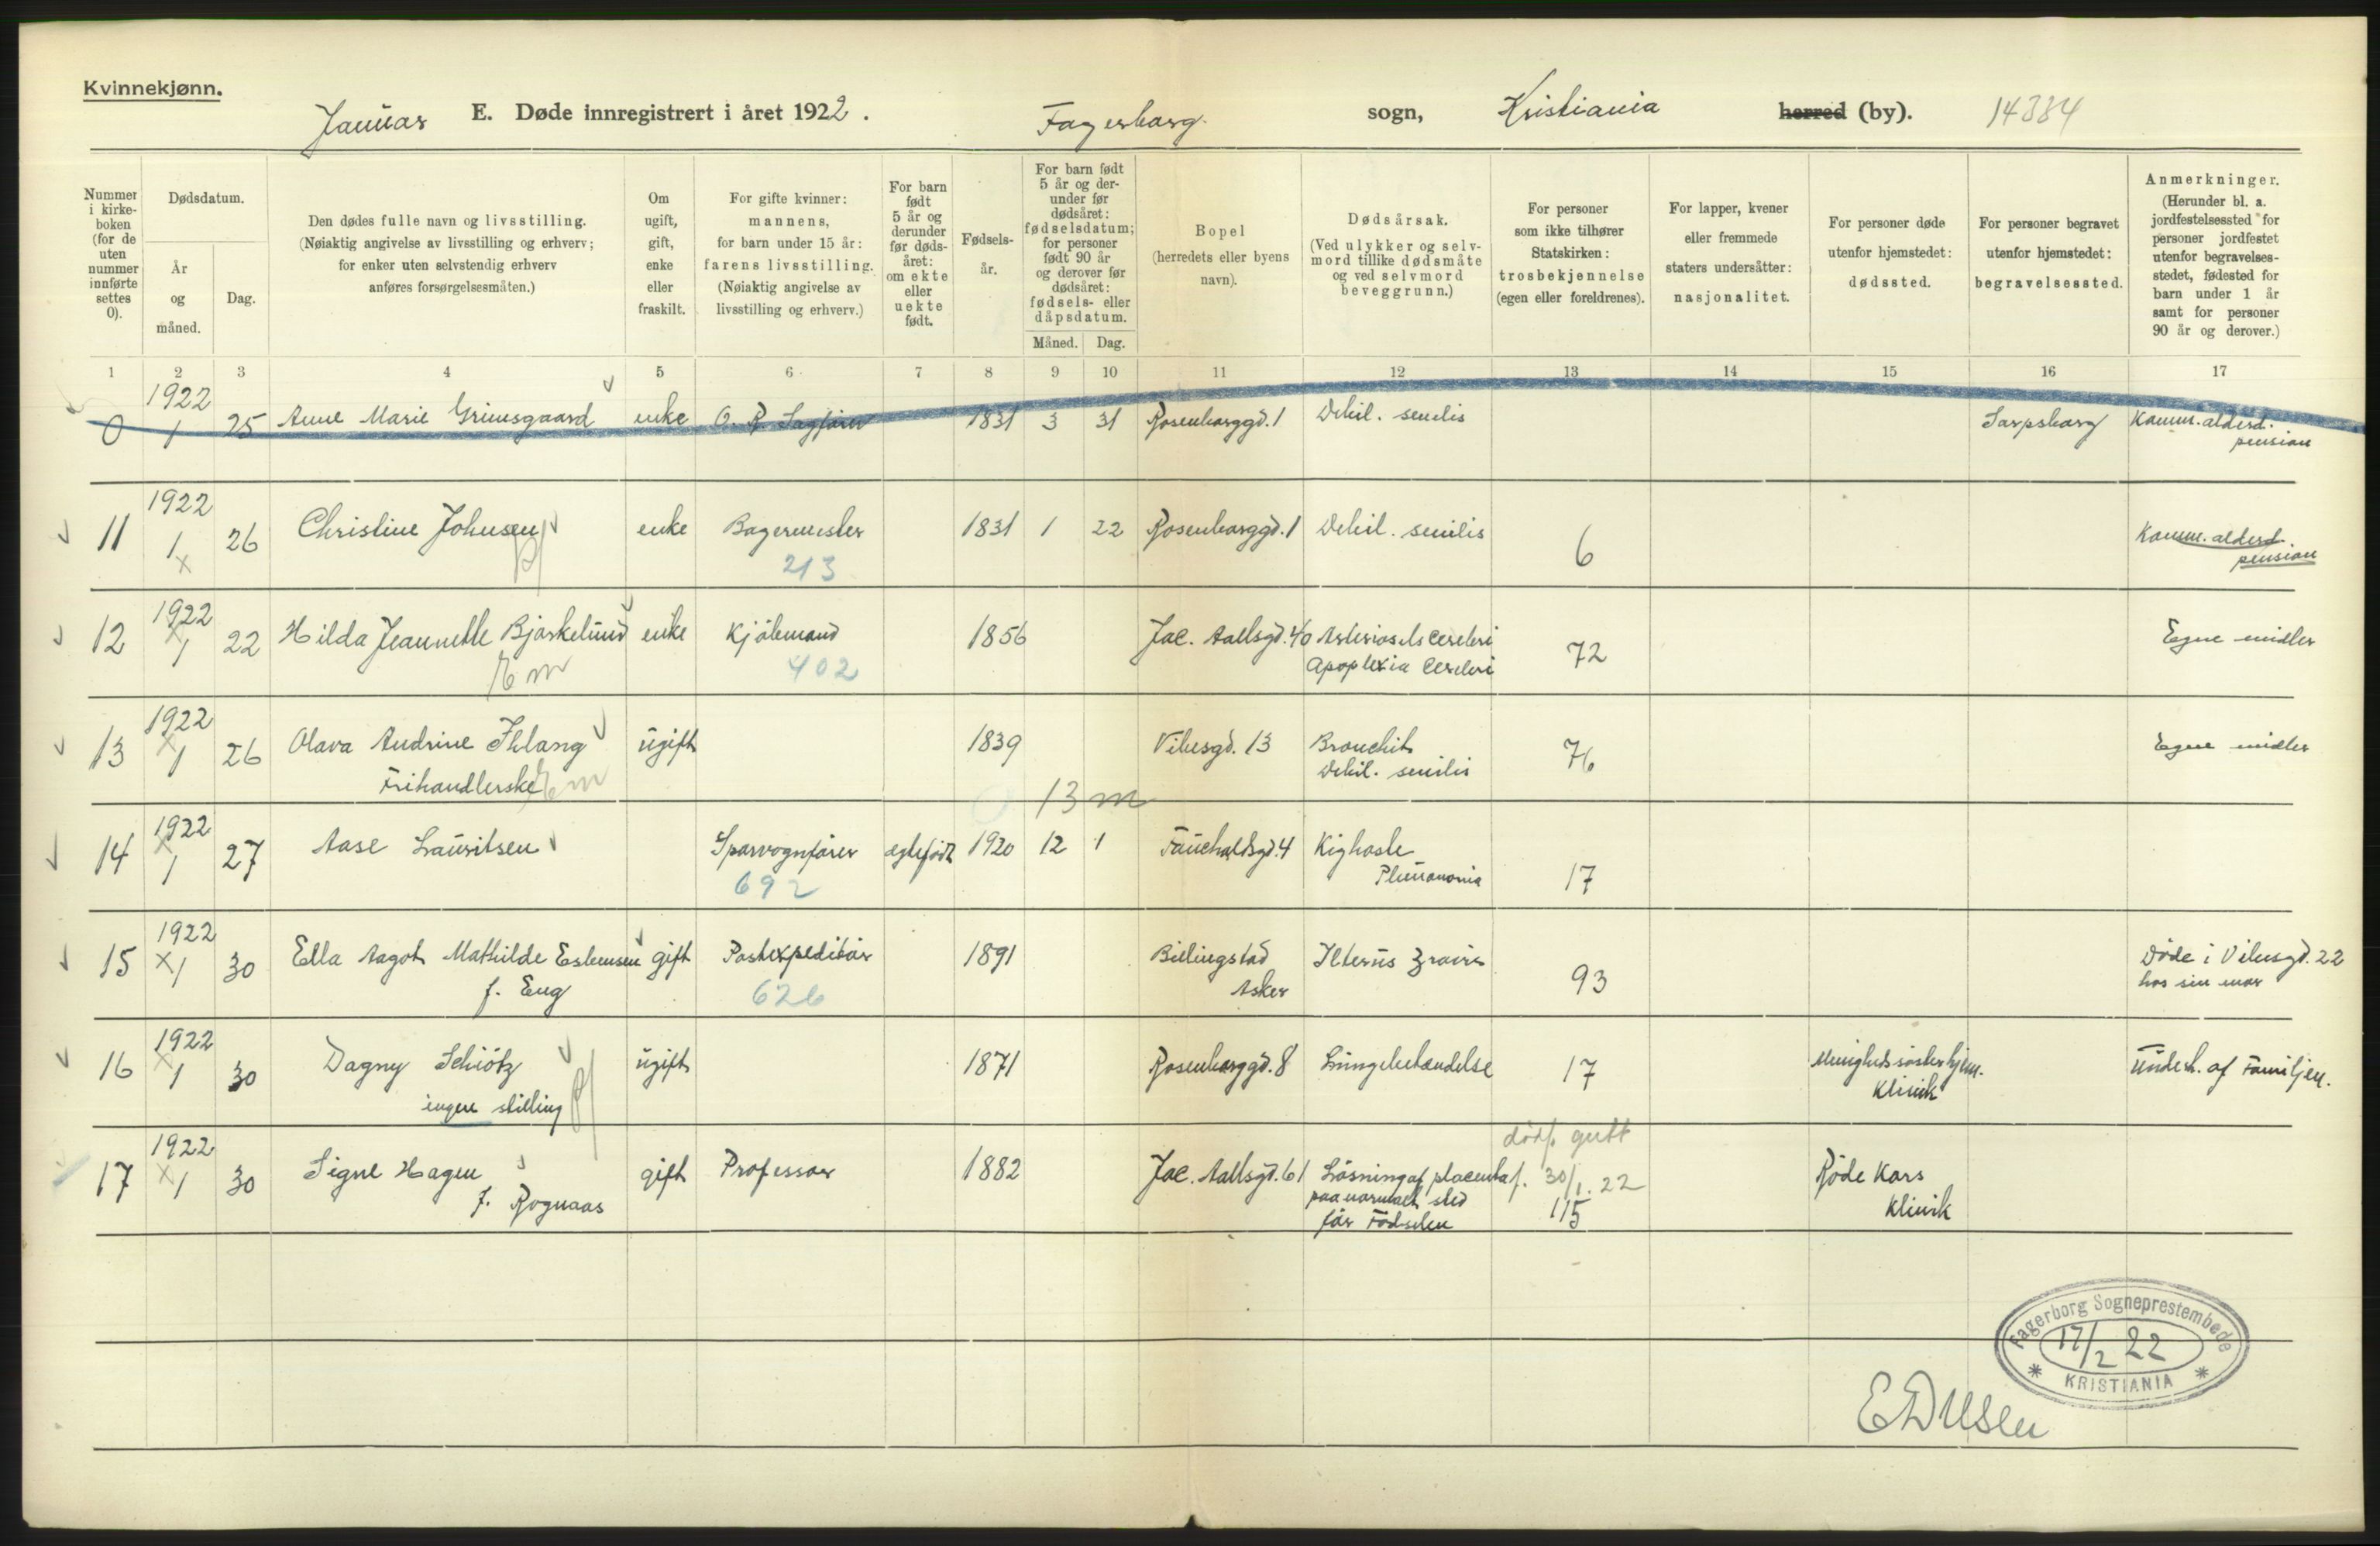 Kvinnekjønn.
Januar E. Døde innregistrert i året 1922. Fagerborg sogn, Kristiania herred (by). 14334
Nummer i kirke-boken (for de uten nummer innførte settes 0).
Dødsdatum.
År og måned.
Dag.
Den dødes fulle navn og livsstilling.
(Nøiaktig angivelse av livsstilling og erhverv;
for enker uten selvstendig erhverv
anføres forsørgelsesmåten.)
Om
ugift,
gift,
enke
eller
fraskilt.
For gifte kvinner:
mannens,
for barn under 15 år:
farens livsstilling.
(Nøiaktig angivelse av
livsstilling og erhverv.)
For barn
født
5 år og
derunder
før døds-
året:
om ekte
eller
uekte
født.
Fødsels-
år.
For barn født
5 år og der-
under før
dødsåret:
fødselsdatum;
for personer
født 90 år
og derover før
dødsåret:
fødsels- eller
dåpsdatum.
Måned. Dag.
Bopel
(herredets eller byens
navn).
Dødsårsak.
(Ved ulykker og selv-
mord tillike dødsmåte
og ved selvmord
beveggrunn.)
For personer
som ikke tilhører
Statskirken:
trosbekjennelse
(egen eller foreldrenes).
For lapper, kvener
eller fremmede
staters undersåtter:
nasjonalitet.
For personer døde
utenfor hjemstedet:
dødssted.
For personer begravet
utenfor hjemstedet:
begravelsessted.
Anmerkninger.
(Herunder bl. a.
jordfestelsessted for
personer jordfestet
utenfor begravelses-
stedet, fødested for
barn under 1 år
samt for personer
90 år og derover.)
1 2 3 4 5 6 7 8 9 10 11 12 13 14 15 16 17
1922
0 1 25 Anne Marie Grimsgaard enke O. R. Sagfører 1831 3 31 Rosenborggd. 1 Debil. senilis Sarpsborg Komm. alderd.
pension
1922
11 1 26 Christine Johnsen enke Bagermester 1831 1 22 Rosenborggd. 1 Debil. senilis 6 Komm. alderd.
x 213 pension
1922
12 1 22 Hilda Jeannette Bjørkelund enke Kjølemand 1856 Jac. Aallsgd. 40 Arteriosels cerebri 72 Egne midler
402 Apoplexia Cerebri
1922
13 1 26 Olava Andrine Ihlang ugift 1839 Vibesgd. 13 Bronchit 76 Egne midler
Frihandlerske Debil. senilis
13 m
1922
14 1 27 Aase Lauritsen Sporvognfører egtefødt 1920 12 1 Fauchaldsgd. 4 Kighoste
692 Pleuronomia 17
1922
15 x 1 30 Ella Aagot Mathilde Esbensen gift Postexpeditør 1891 Billingstad Ikterus gravis Døde i Vibesgd. 22
f. Eng 626 Asker 93 hos sin mor
1922
16 1 30 Dagny Schiötz ugift 1871 Rosenborggd. 8 Lungebetændelse 17 Menighedssøsterhjem. Underh. af Familjen.
ingen stilling Klinik
1922 dødf. gutt
17 x 1 30 Signe Hagen gift Professor 1882 Jac. Aallsgd. 61 Løsning af placenta f. 30/1. 22 Røde Kors
f. Rognaas paa normalt sted 115 Klinik
før Fødselen
Fagerborg Sogneprestembede
17/2 22
* KRISTIANIA *